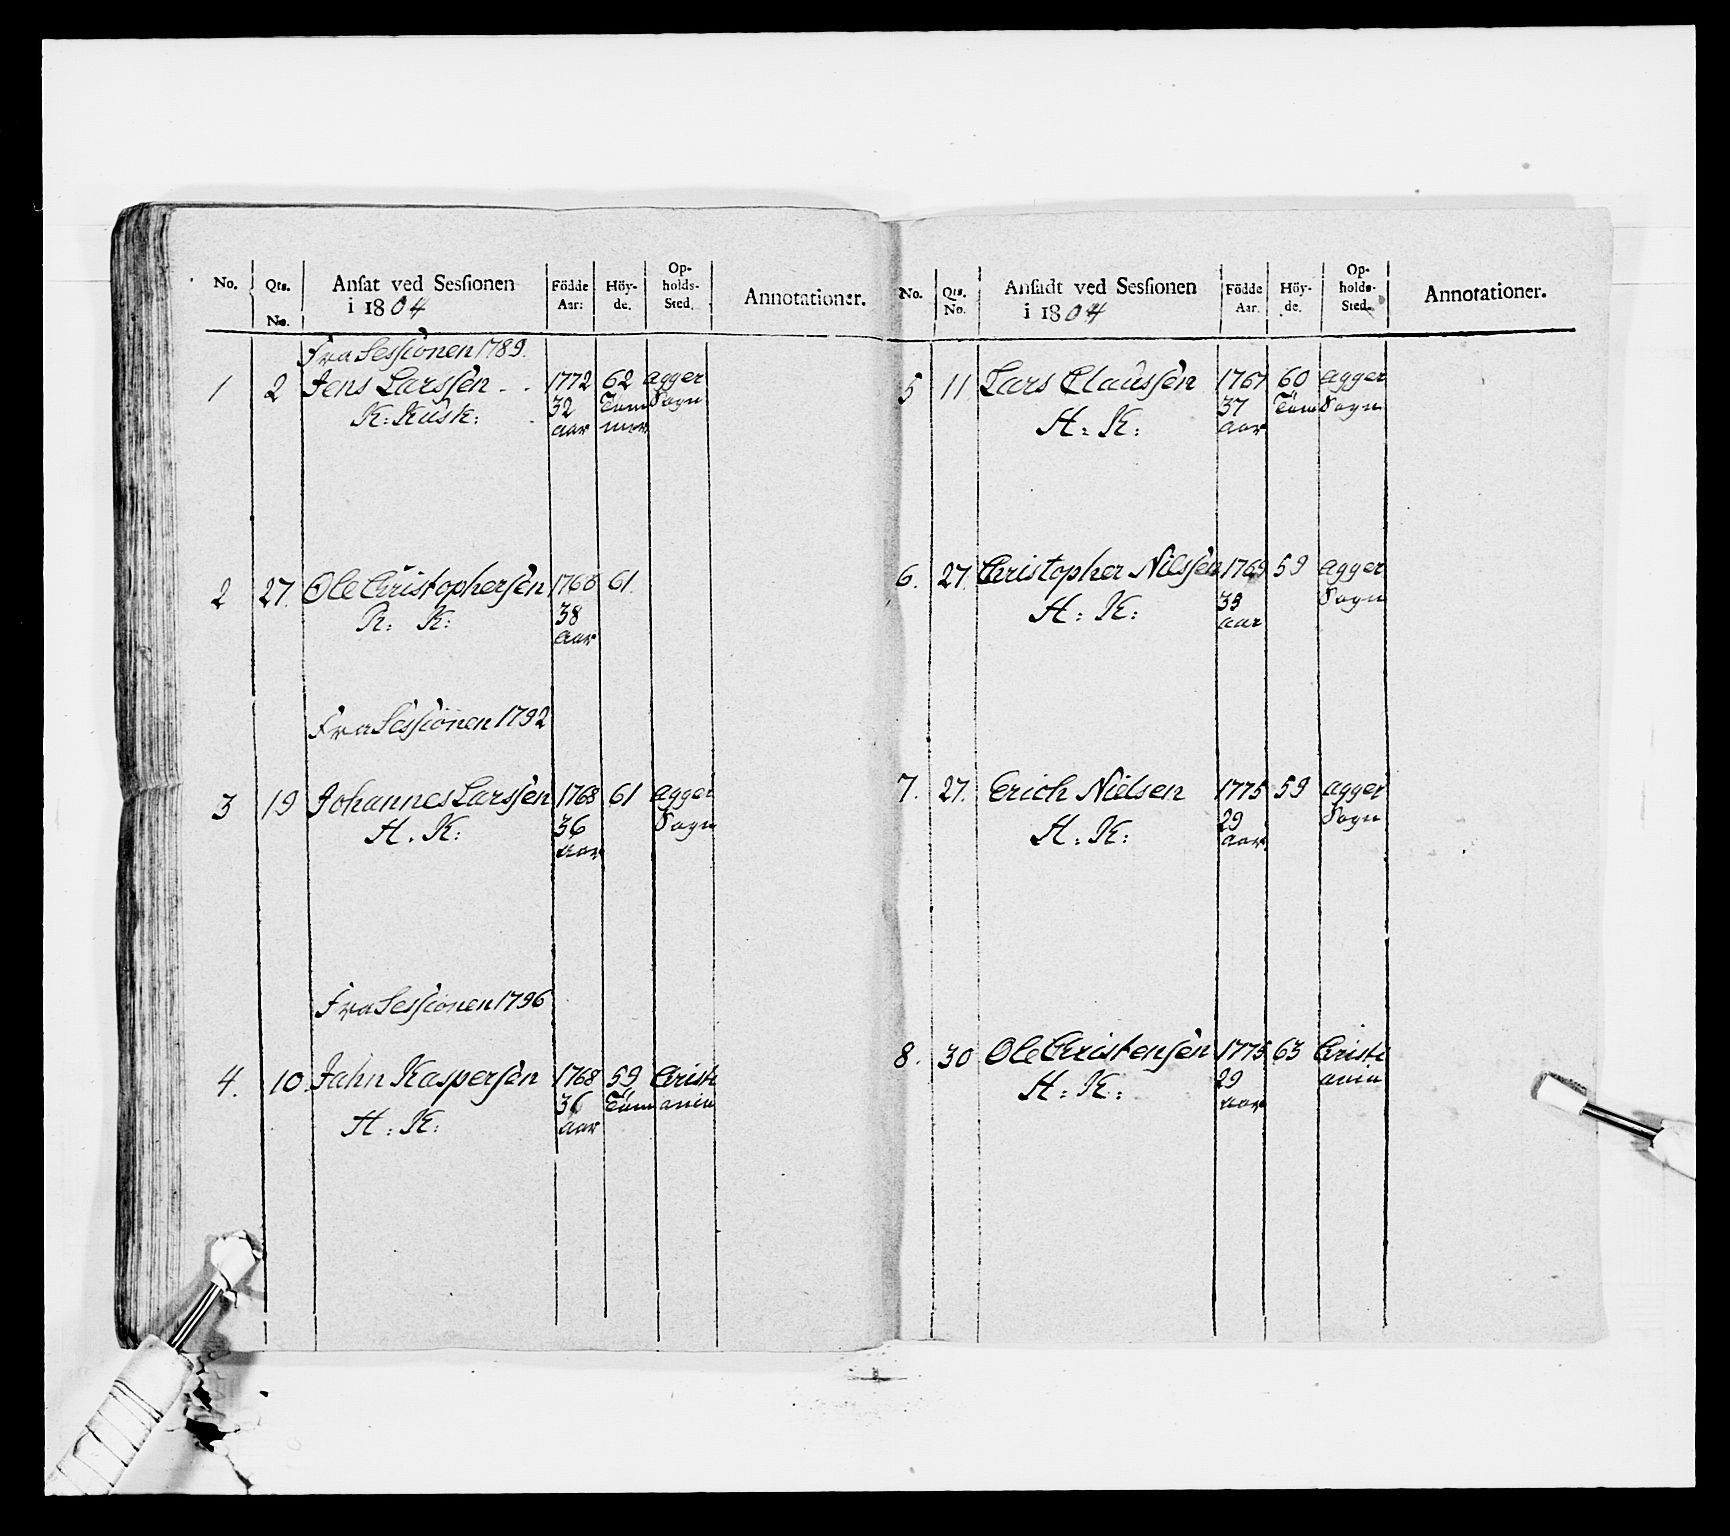 No. Qts. No. Ansat ved Sessionen i 1804 Födde Aar: Höy-de. Op-holds-Sted. Annotationer.
Fra Sessionen 1789.
1 2 Jens Larssen - . 1772 62 Agger
K: Kusk: 32 Tom Sogn
aar mer
2 27. Ole Christophersen 1768 61.
R: K: 38
aar
Fra Sessionen 1792
3 19 Johannes Larssen 1768 61 Agger
H. K: 36 Sogn
aar
Fra Sessionen 1796
4. 10 Jahn Kaspersen 1768 59 Christi
H: K: 36 Tom ania
aar
No. Qts. No. Ansadt ved Sessionen i 1804 Födde Aar. Höy-de. Op-holds-Sted. Annotationer.
5 11 Lars Claussen 1767 60 Agger
H: K: 37 Tom Sogn
aar
6. 27. Christopher Nilssen 1769 59 Agger
H: K: 35 Sogn
aar
7. 27. Erich Nielsen 1775 59 Agger
H: K: 29 Sogn
aar
8. 30 Ole Christensen 1775 63 Christi
H: K: 29 ania
aar